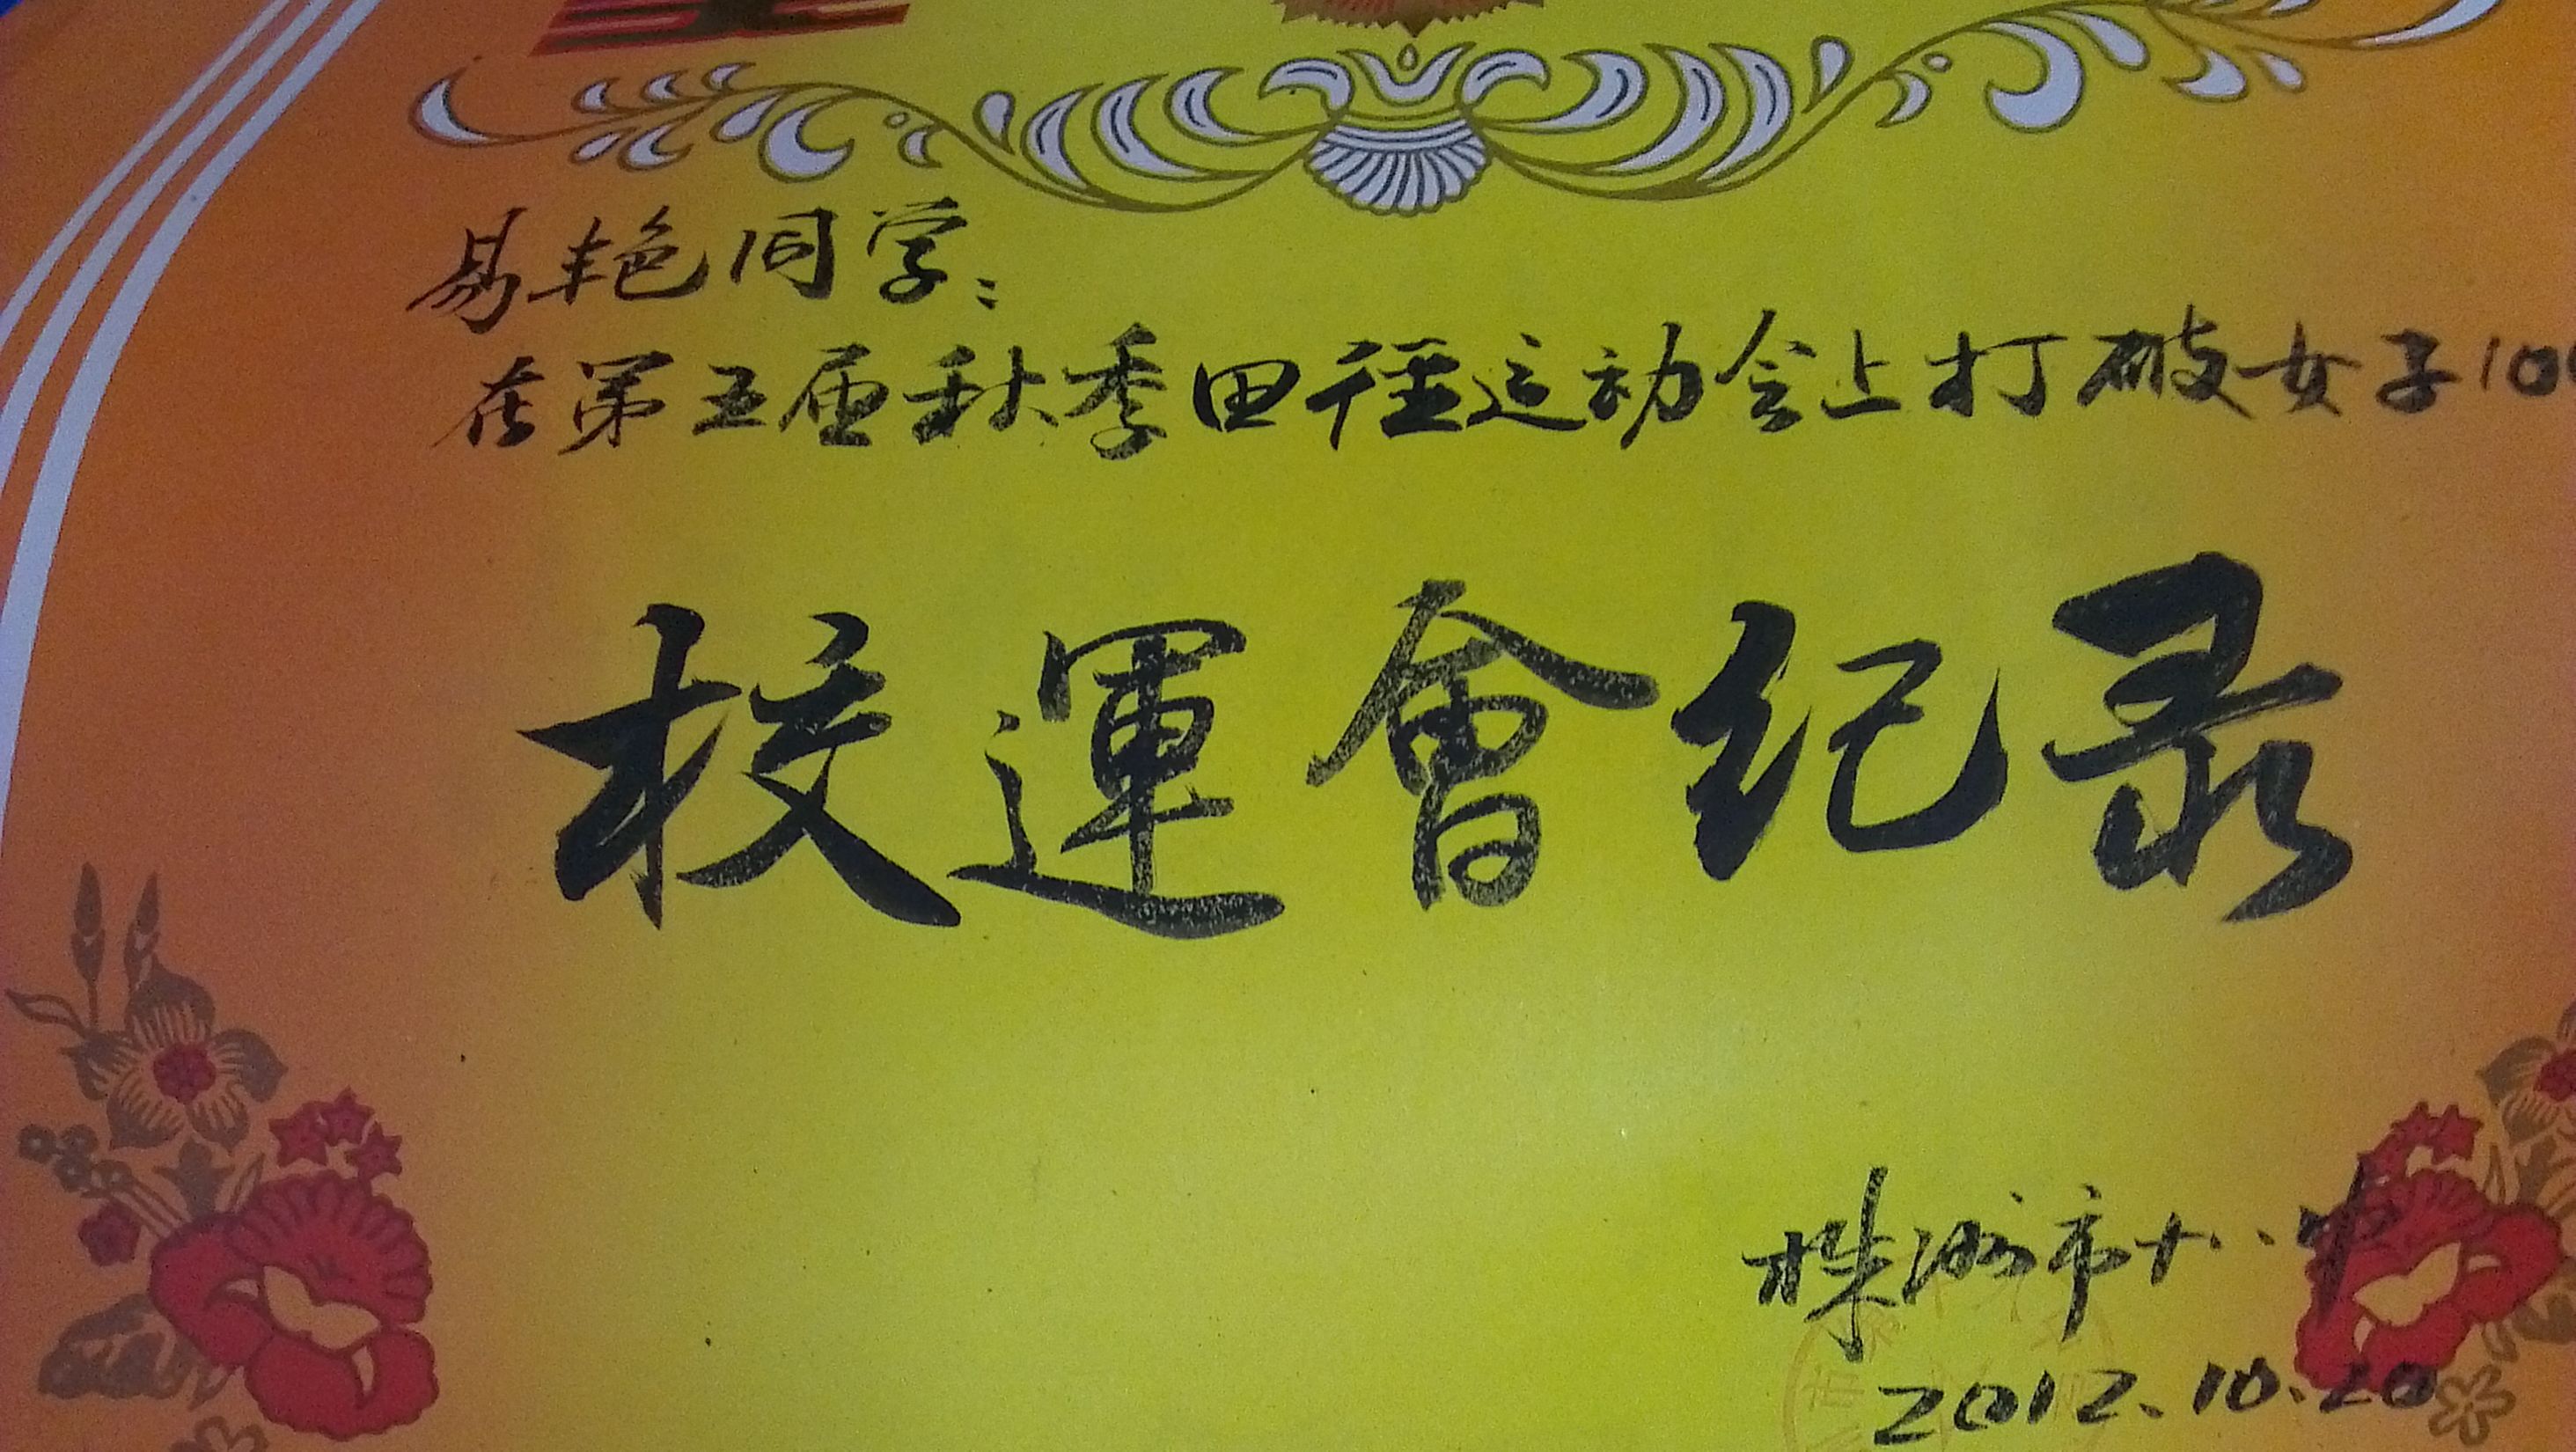 易艳同学：
在第五届秋季田径运动会上打破女子100
校運會纪录
株洲市十八中
2012.10.20